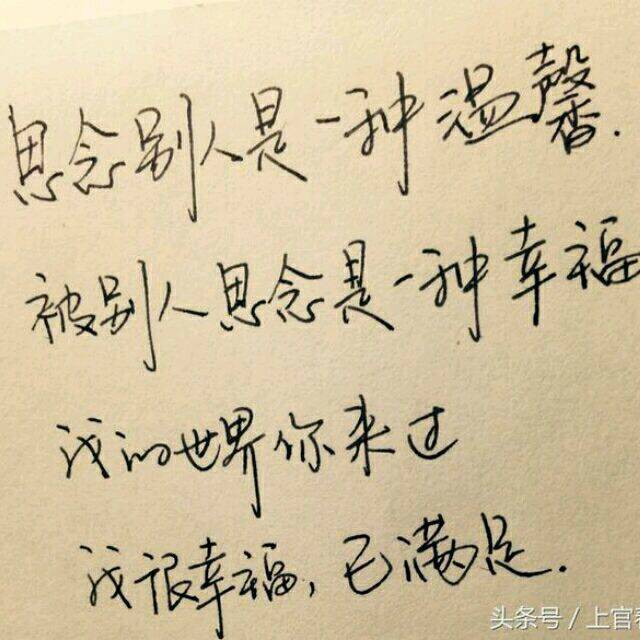 思念别人是一种温馨.
被别人思念是一种幸福
我的世界你来过
我很幸福,已满足.
头条号/上官